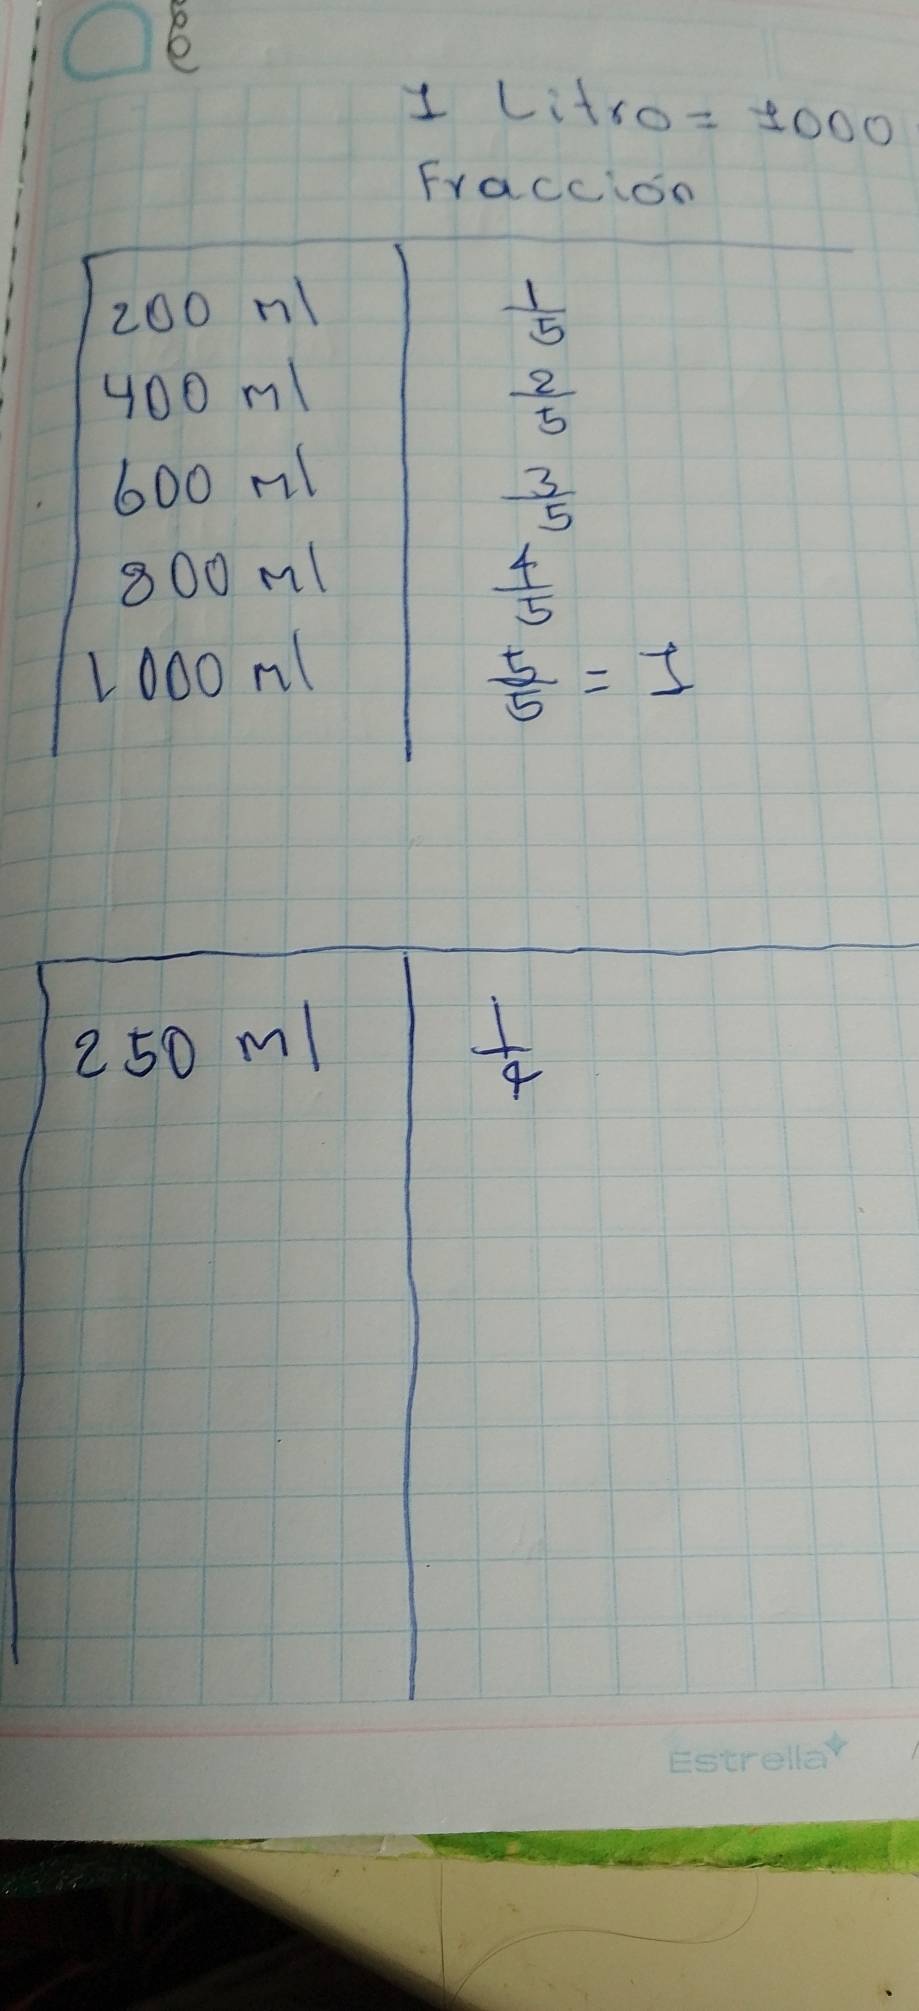 1 Litro = 1000
Fracción
200 ml 1/5
400 ml 2/5
600 ml 3/5
800 ml 4/5
1000 ml 5/5 = 1
250 ml 1/4
Estrella